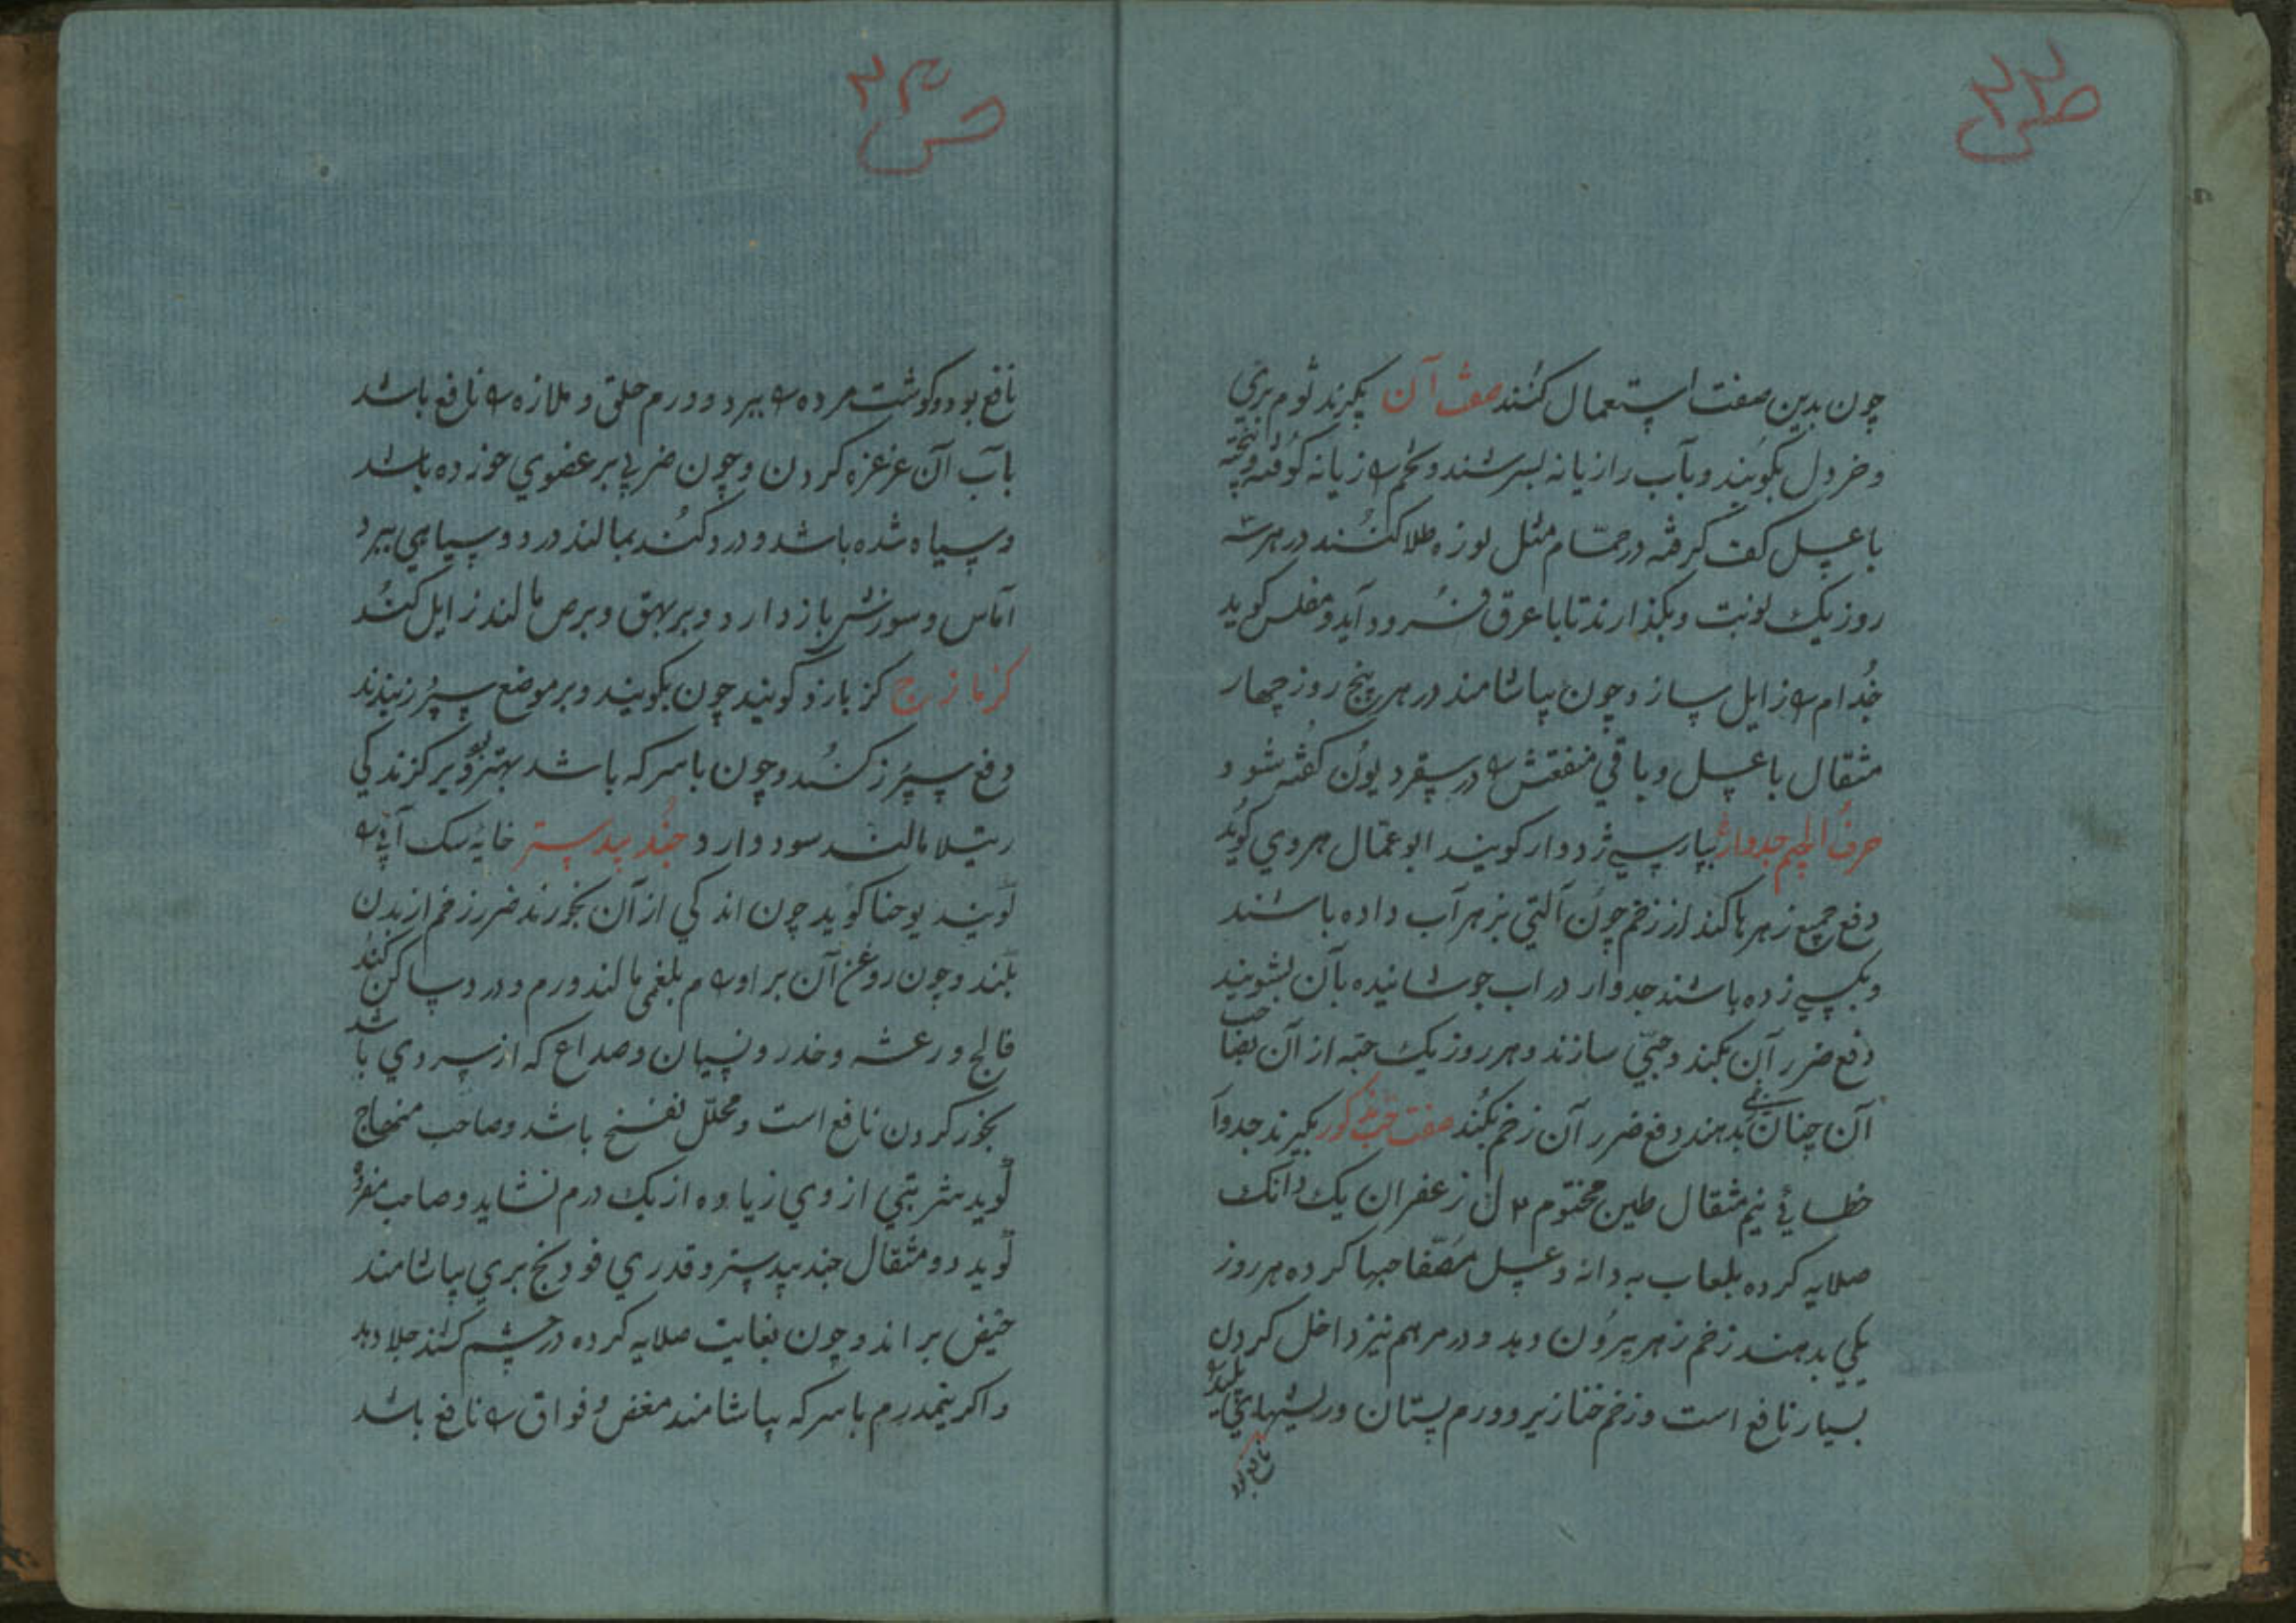 ص ۲۲
چون بدین صفت استعمال کنند صفت آن بگیرند ثوم بری
و خردل بکوبند و بآب رازیانه بسرشند و تخم رازیانه کوفته و پخته
با عسل کف گرفته در حمّام مثل لوزه طلا کنند در هر سه
روز یک نوبت و بگذارند تا با عرق فرود آید و مفلس گوید
جُذام را زایل سازد و چون بیاشامند در هر پنج روز چهار
مثقال با عسل و باقی منفعتش را در سقردیون گفته شود
حرف الجیم جدوار بپارسی ژدوار گویند ابو عمّال هروی گوید
دفع جمیع زهرها کند از زخم چون آلتی بزهر آب داده باشند
و بکسی زده باشند جدوار در اب جوشانیده بآن بشویند
دفع ضرر آن بکند و حبّی سازند و هر روز یک حبّه از آن بصاحب
آن چنان زخمی بدهند دفع ضرر آن زخم بکند صفت حب مذکور بگیرند جدوا
خطائی نیم مثقال طین مختوم ۲ ن زعفران یک دانک
صلایه کرده بلعاب به دانه و عسل مُصفّا حبها کرده هر روز
یکی بدهند زخم زهر بیرون دهد و در مرهم نیز داخل کردن
بسیار نافع است و زخم خنازیر و ورم پستان و ریشهای پلید را
نافع بود
ص ۲۳
نافع بود و گوشت مرده را ببرد و ورم حلق و ملازه را نافع باشد
بآب آن غرغره کردن و چون ضربی بر عضوی خورده باشد
و سیاه شده باشد و درد کند بمالند درد و سیاهی ببرد
آماس و سوزش باز دارد و بر بهق و برص مالند زایل کند
کزمازج کزبازو گویند چون بکوبند و بر موضع سپرز بندند
دفع سپرز کند و چون با سرکه باشد بهتر بود و بر کزندکی
رتیلا مالند سود دارد جند بیدستر خایه سک آبی را
گویند یوحنا گوید چون اندکی از آن بخورند ضرر زخم از بدن
بکند و چون روغن آن بر اورام بلغمی مالند ورم و درد ساکن کند
فالج و رعشه و خدر و نسیان و صداع که از سردی باشد
بخور کردن نافع است و محلّل نفخ باشد و صاحب منهاج
گوید شربتی از وی زیاده از یک درم نشاید و صاحب مفرده
گوید دو مثقال جند بیدستر و قدری فودنج بری بیاشامند
حیض براند و چون بغایت صلایه کرده در چشم کشند جلا دهد
و اکر نیمدرم با سرکه بیاشامند مغص و فواق را نافع باشد